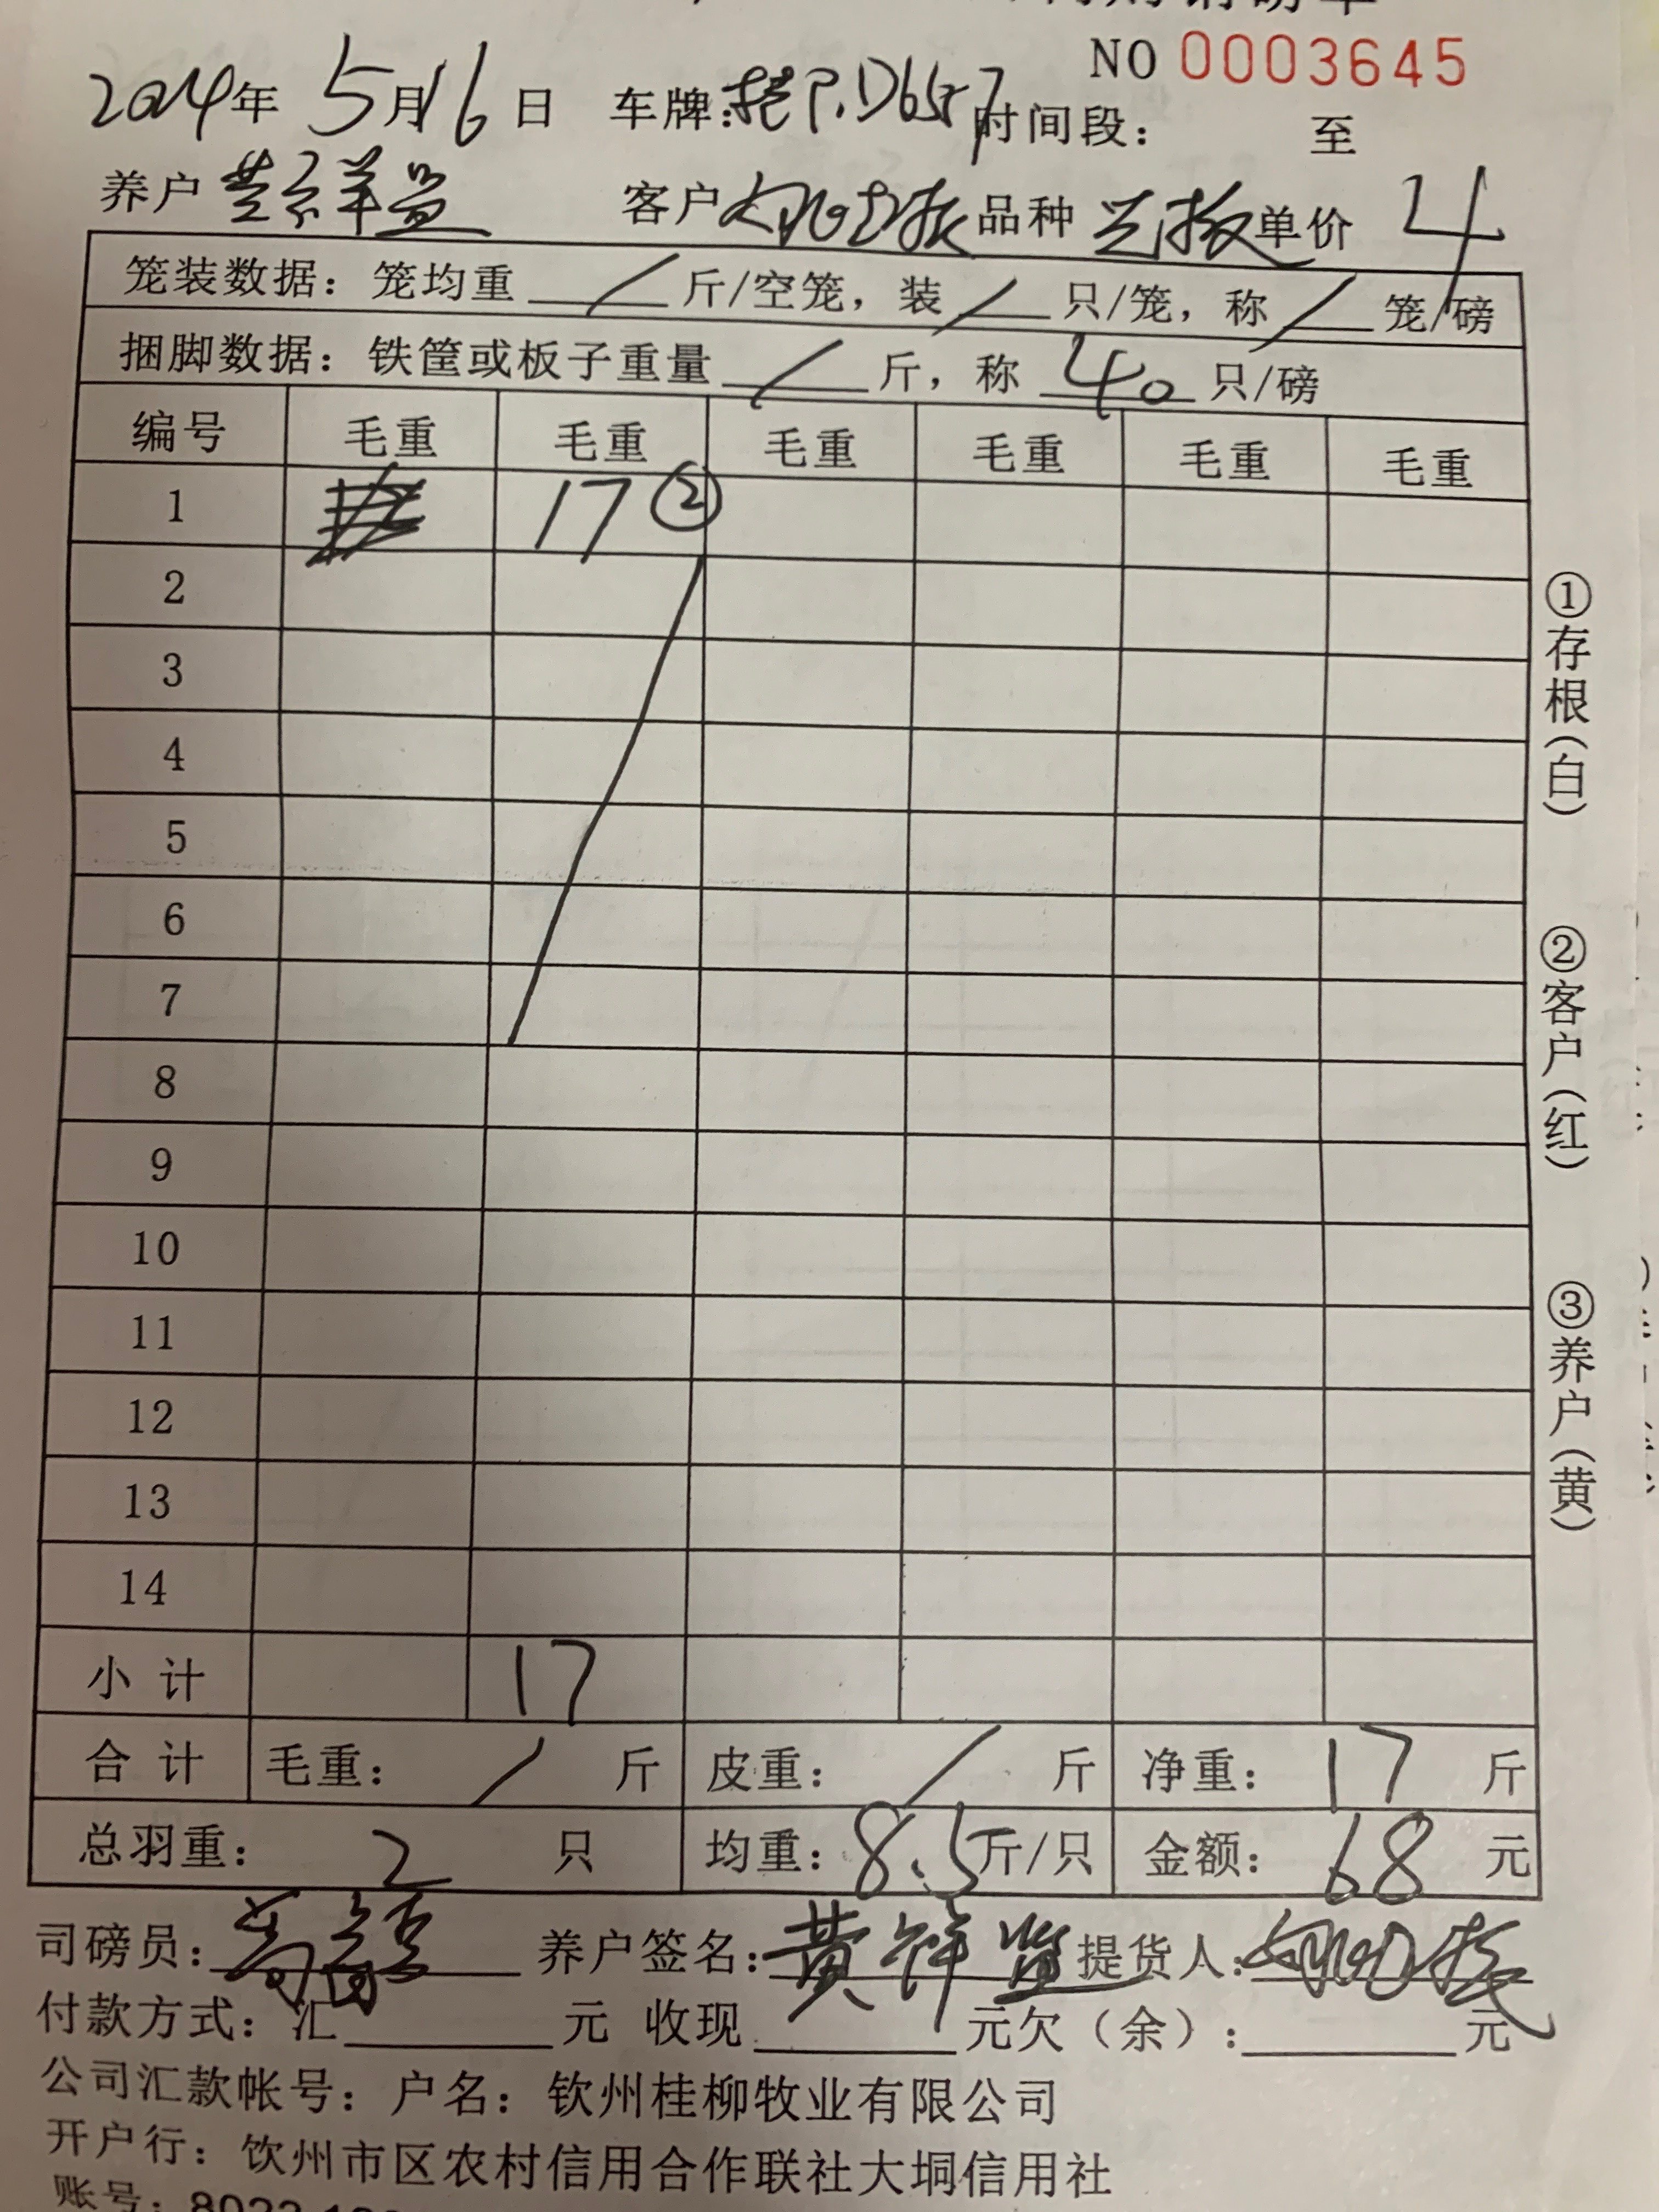 NO 0003645
2024年 5月16日 车牌:桂P.D6557 时间段: 至
养户 客户 品种 单价 4
笼装数据: 笼均重 / 斤/空笼, 装 / 只/笼, 称 / 笼/磅
捆脚数据: 铁筐或板子重量 / 斤, 称 40 只/磅
编号 毛重 毛重 毛重 毛重 毛重 毛重
1 17 ②
2
3
4
5
6
7
8
9
10
11
12
13
14
小计 17
合计 毛重: / 斤 皮重: / 斤 净重: 17 斤
总羽重: 2 只 均重: 8.5 斤/只 金额: 68 元
司磅员: 养户签名: 黄祥 提货人:
付款方式: 汇 元 收现 元欠(余): 元
公司汇款帐号: 户名: 钦州桂柳牧业有限公司
开户行: 钦州市区农村信用合作联社大垌信用社
账号:
①存根(白)
②客户(红)
③养户(黄)